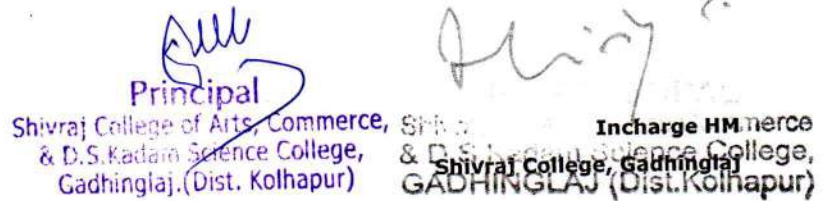 Principal
Shivraj College of Arts, Commerce,
& D.S.Kadam Science College,
Gadhinglaj.(Dist. Kolhapur)
Incharge HM merce
Shivraj College, Gadhinglaj
& D.S. Kadam Science College,
GADHINGLAJ (Dist.Kolhapur)